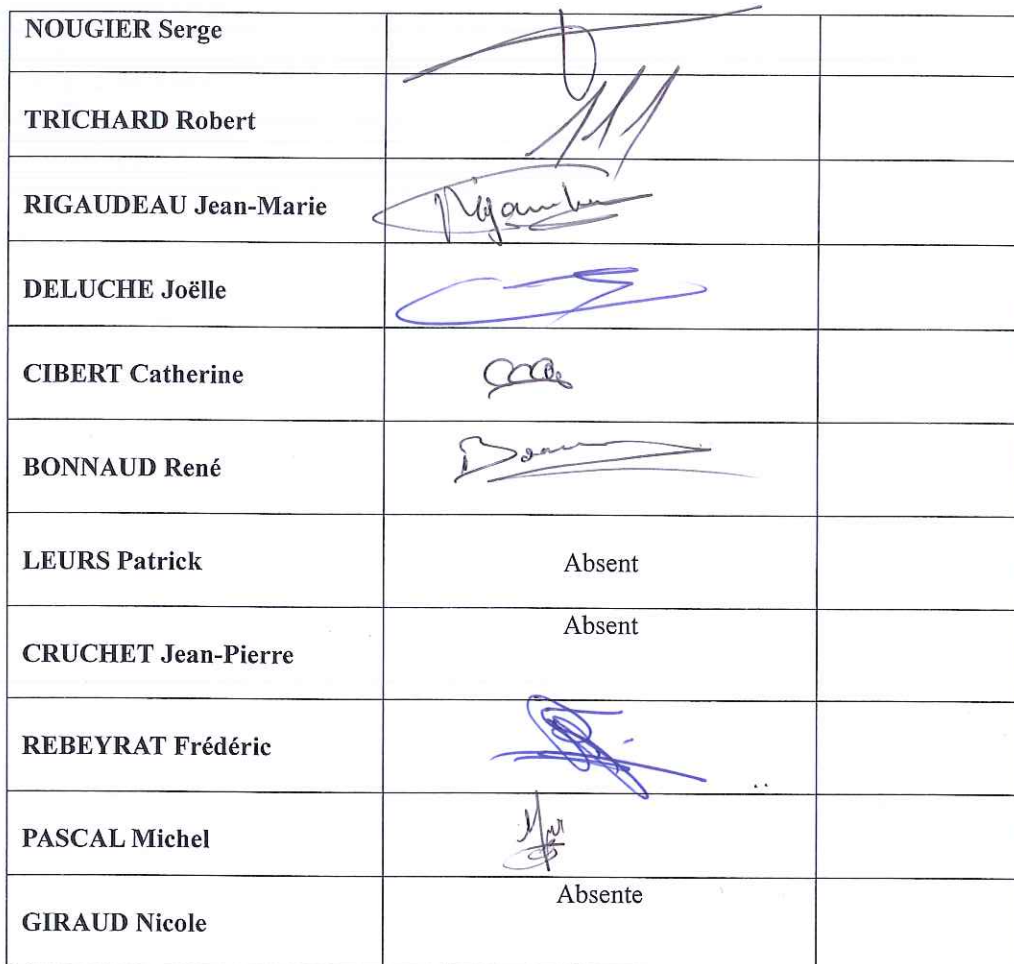 NOUGIER Serge
TRICHARD Robert
RIGAUDEAU Jean-Marie
DELUCHE Joëlle
CIBERT Catherine
BONNAUD René
LEURS Patrick Absent
Absent
CRUCHET Jean-Pierre
REBEYRAT Frédéric
PASCAL Michel
Absente
GIRAUD Nicole